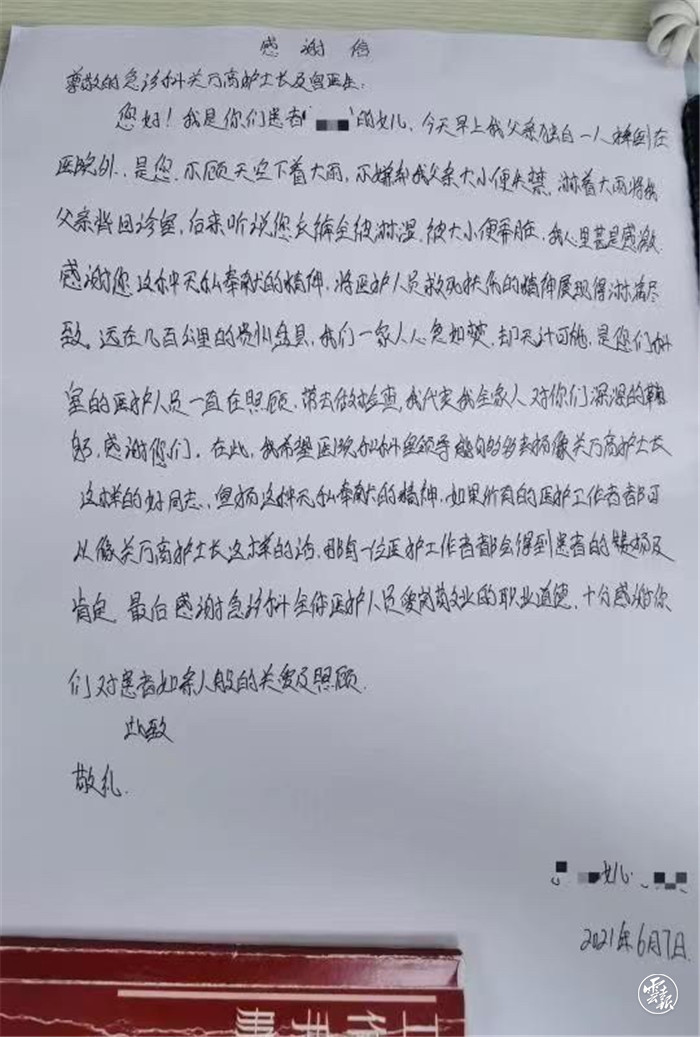 感谢信
尊敬的急诊科关万高护士长及曾医生:
您好!我是你们患者 的女儿、今天早上我父亲独自一人摔倒在
医院外、是您、不顾天空下着大雨,不嫌弃我父亲大小便失禁,淋着大雨将我
父亲背回诊室,后来听说您衣裤全被淋湿,被大小便弄脏,我心里甚是感激
感谢您这种无私奉献的精神,将医护人员救死扶伤的精神展现得淋漓尽
致。远在几百公里的贵州盘县,我们一家人心急如焚,却无计可施,是您们科
室的医护人员一直在照顾、带去做检查,我代表我全家人对你们深深的鞠
躬,感谢您们。在此,我希望医院和科室领导能够多表扬像关万高护士长
这样的好同志,宣扬这种无私奉献的精神,如果所有的医护工作者都可
以像关万高护士长这样的话,那每一位医护工作者都会得到患者的赞扬及
肯定。最后感谢急诊科全体医护人员爱岗敬业的职业道德,十分感谢你
们对患者如亲人般的关爱及照顾.
此致
敬礼.
女儿
2021年6月7日
工作手册
雲报